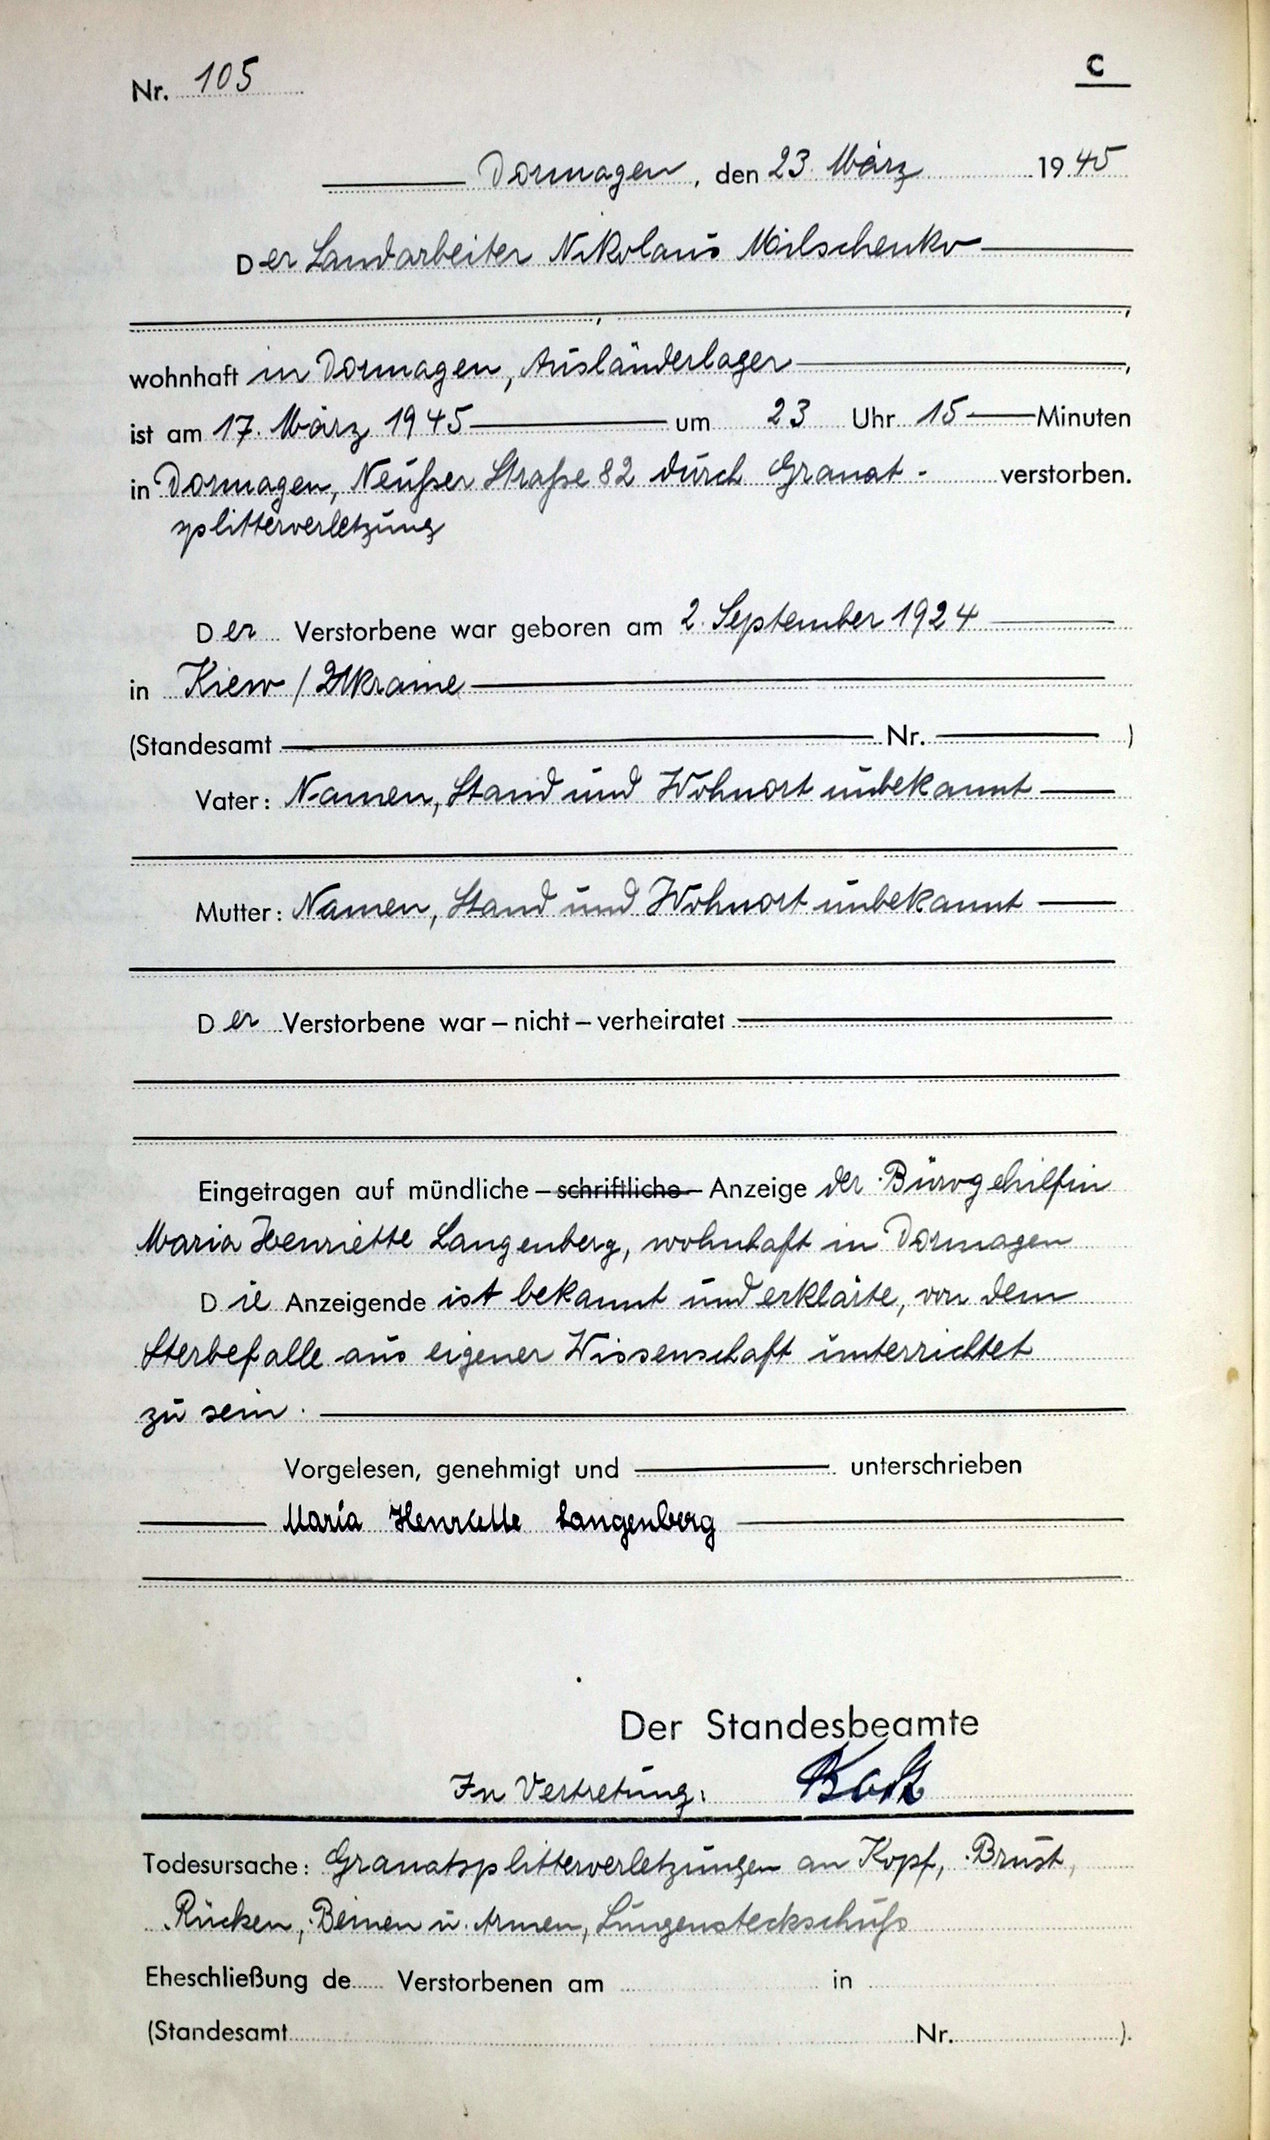 Nr. 105
C
Dormagen, den 23. März 1945
Der Landarbeiter Nikolaus Milschenko
wohnhaft in Dormagen, Ausländerlager,
ist am 17. März 1945 um 23 Uhr 15 Minuten
in Dormagen, Neußer Straße 82 durch Granat- verstorben.
splitterverletzung
Der Verstorbene war geboren am 2. September 1924
in Kiew / Ukraine
(Standesamt Nr. )
Vater: Namen, Stand und Wohnort unbekannt
Mutter: Namen, Stand und Wohnort unbekannt
Der Verstorbene war – nicht – verheiratet
Eingetragen auf mündliche – schriftliche – Anzeige der Bürogehilfin
Maria Henriette Langenberg, wohnhaft in Dormagen
Die Anzeigende ist bekannt und erklärte, von dem
Sterbefalle aus eigener Wissenschaft unterrichtet
zu sein.
Vorgelesen, genehmigt und unterschrieben
Maria Henriette Langenberg
Der Standesbeamte
In Vertretung:
Todesursache: Granatsplitterverletzungen an Kopf, Brust,
Rücken, Beinen u. Armen, Lungensteckschuß
Eheschließung de Verstorbenen am in
(Standesamt Nr. ).